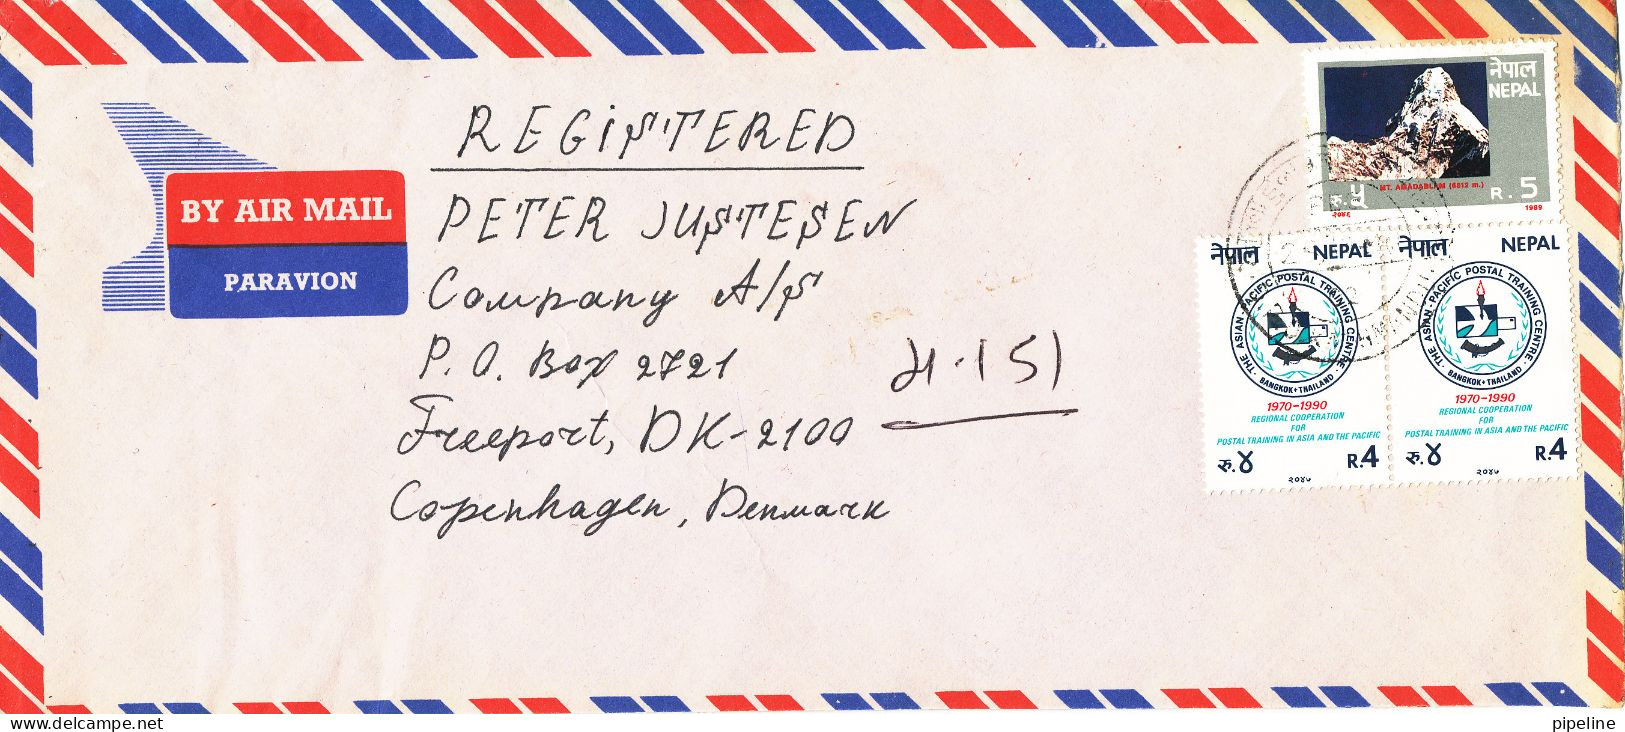 REGISTERED
BY AIR MAIL
PARAVION
PETER JUSTESEN
Company A/S
P. O. Box 2721
Freeport, DK-2100
Copenhagen, Denmark
नेपाल
NEPAL
MT. AMADABLAM (6812 m.)
रु. ५ R. 5
२०४६ 1989
नेपाल NEPAL
THE ASIAN-PACIFIC POSTAL TRAINING CENTRE
BANGKOK • THAILAND
1970-1990
REGIONAL COOPERATION
FOR
POSTAL TRAINING IN ASIA AND THE PACIFIC
रु. ४ R.4
२०४७
नेपाल NEPAL
THE ASIAN-PACIFIC POSTAL TRAINING CENTRE
BANGKOK • THAILAND
1970-1990
REGIONAL COOPERATION
FOR
POSTAL TRAINING IN ASIA AND THE PACIFIC
रु. ४ R.4
२०४७
delcampe.net
pipeline